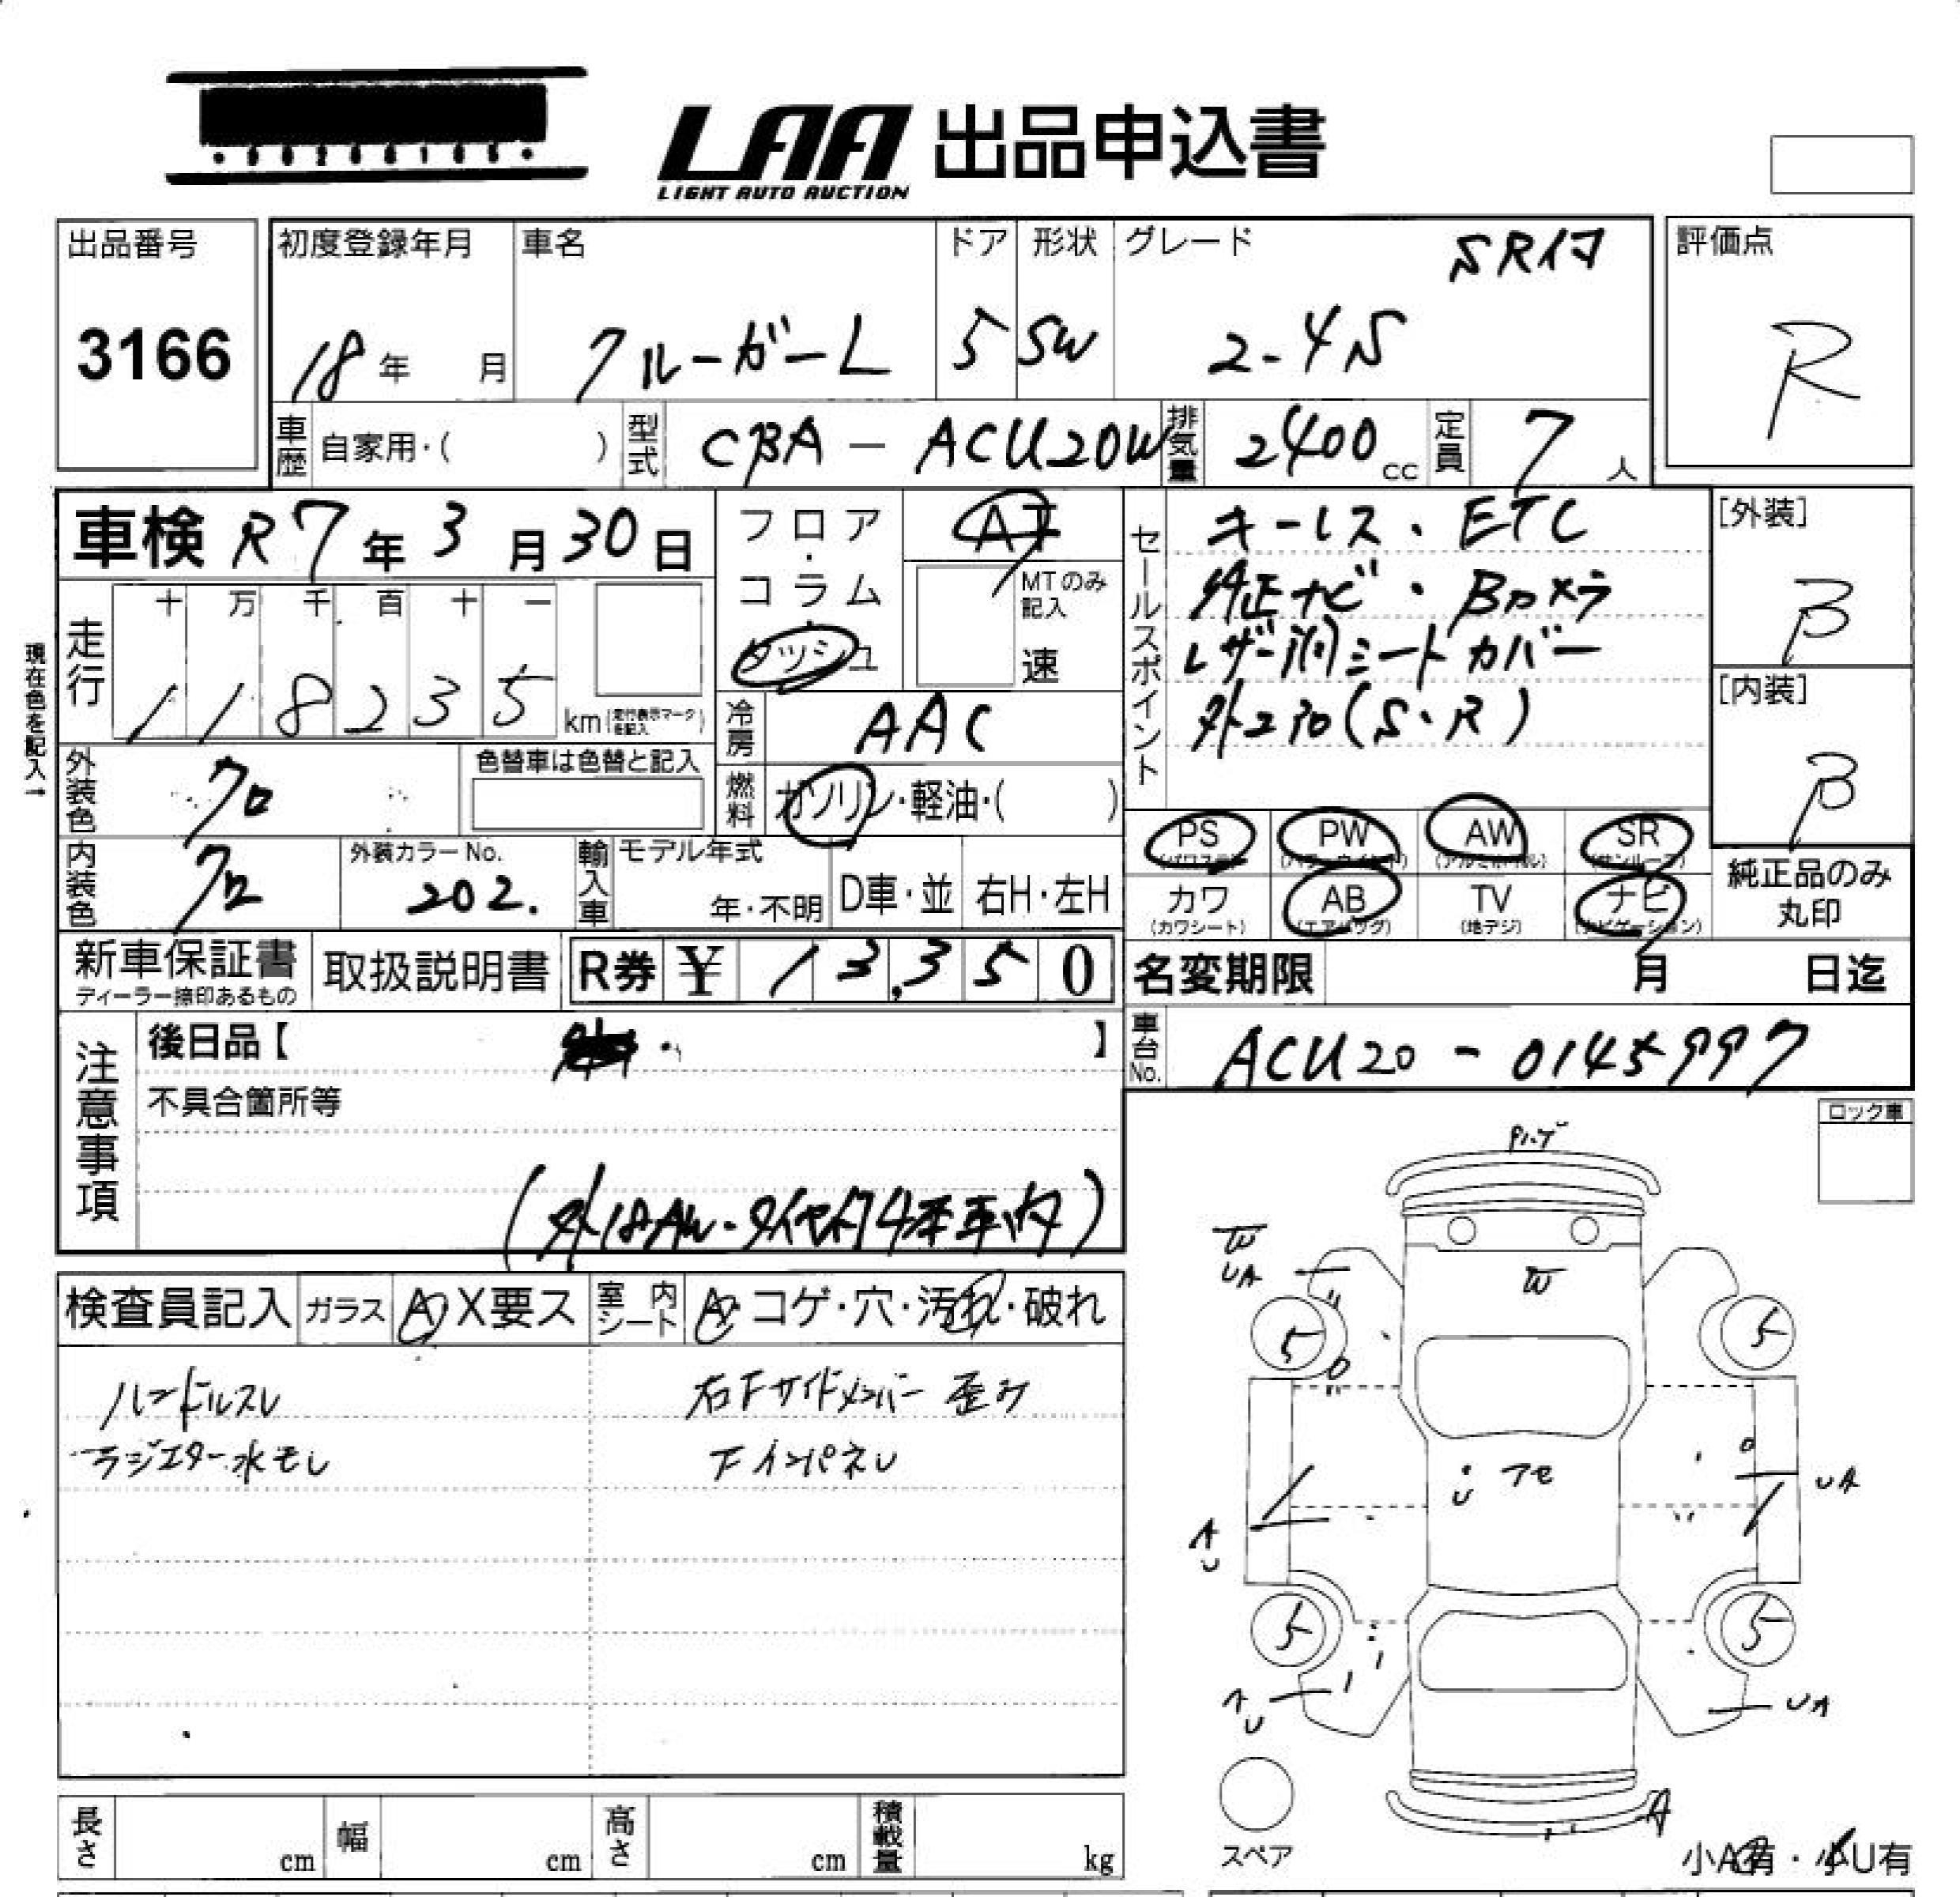 LAA 出品申込書
LIGHT AUTO AUCTION
出品番号
3166
初度登録年月
18年 月
車名
クルーガーL
ドア
5
形状
SW
グレード
SR付
2-4S
評価点
R
車歴 自家用・( )
型式 CBA - ACU20W
排気量 2400cc
定員 7人
車検 R7年3月30日
フロア・コラム・ダッシュ
AT
MTのみ記入
速
走行
十 万 千 百 十 一
1 1 8 2 3 5 km (走行表示マークを記入)
現在色を記入→
冷房 AAC
燃料 ガソリン・軽油・( )
外装色 クロ
色替車は色替と記入
内装色 クロ
外装カラーNo.
202.
輸入車 モデル年式
年・不明 D車・並 右H・左H
セールスポイント
キーレス・ETC
純正ナビ・Bカメラ
レザー調シートカバー
外230(S・R)
[外装]
B
[内装]
B
PS (パワステ) PW (パワーウインド) AW (アルミホイル) SR (サンルーフ)
カワ (カワシート) AB (エアバッグ) TV (地デジ) ナビ (ナビゲーション)
純正品のみ
丸印
新車保証書
ディーラー捺印あるもの
取扱説明書
R券 ¥ 13,350
名変期限 月 日迄
車台No. ACU20 - 0145997
注意事項
後日品【 】
不具合箇所等
(外18AW・タイヤセット4本車内)
ロック車
検査員記入 ガラス A X要ス 室内シート A・コゲ・穴・汚れ・破れ
ハンドルスレ
ラジエター水モレ
右Fサイドメンバー歪み
Fインパネレ
W
UA
W
5
5
UA
アセ
U
A
U
5
5
A
U
UA
A
スペア
小A有・小U有
長さ cm 幅 cm 高さ cm 積載量 kg